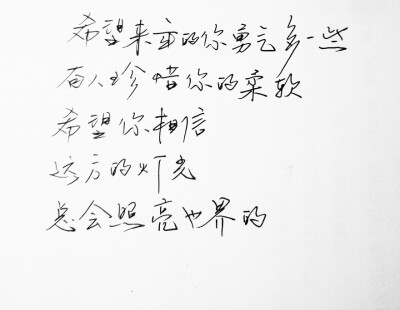 希望未来的你勇气多一些
有人珍惜你的柔软
希望你相信
远方的灯光
总会照亮世界的